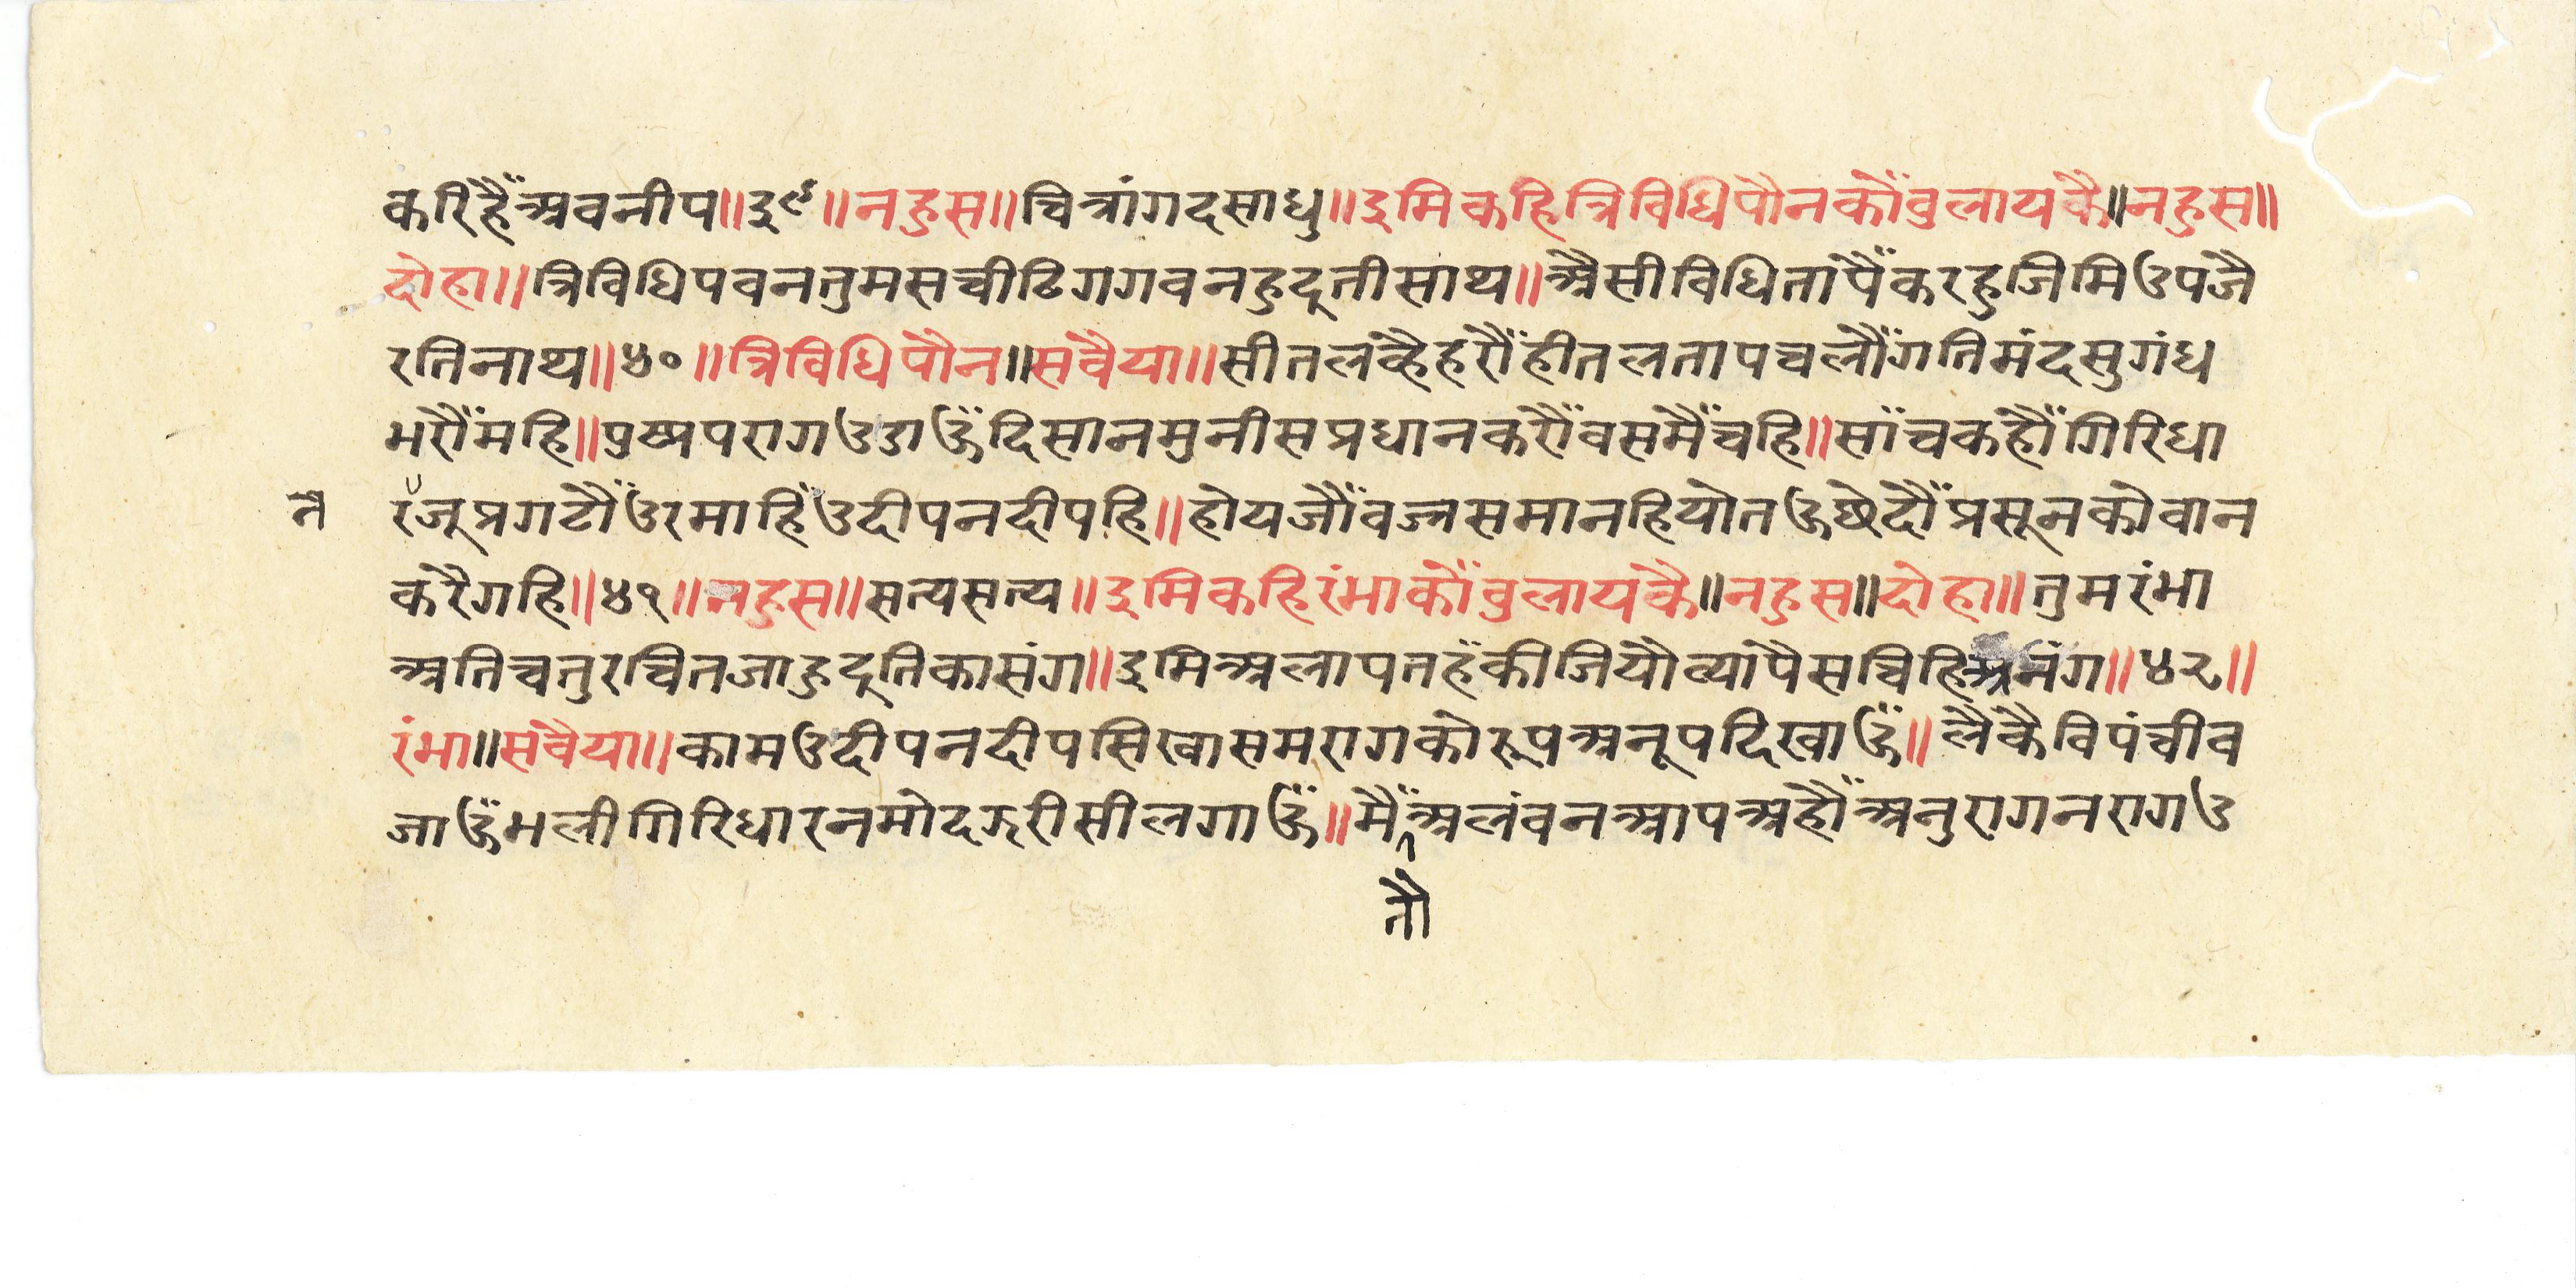 करिहैँअवनीप॥३९॥नहुस॥चित्रांगदसाधु॥इमिकहित्रिविधिपौनकौँवुलायकै॥नहुस॥
दोहा॥त्रिविधिपवनतुमसचीढिगगवनहुदूतीसाथ॥अैसीविधितांपैँकरहुजिमिउपजै
रतिनाथ॥४०॥त्रिविधिपौन॥सवैया॥सीतलव्हैहरौँहीतलतापचलौँगतिमंदसुगंध
भरौँमहि॥पुष्पपरागउडाऊँदिसानमुनीसप्रधानकरौँवसमैँचहि॥साँचकहौँगिरिधा
न
रजूप्रगटौँउरमाहिँउदीपनदीपहि॥होयजौँवज्रसमानहियोतऊछेदौँप्रसूनकोवान
करैगहि॥४१॥नहुस॥सत्यसत्य॥इमिकहिरंभाकौँवुलायकै॥नहुस॥दोहा॥तुमरंभा
अतिचतुरचितजाहुदूतिकासंग॥इमिअलापतहँकीजियौव्यापैसचिहिअनंग॥४२॥
रंभा॥सवैया॥कामउदीपनदीपसिखासमरागकोरूपअनूपदिखाऊँ॥लैकैविपंचीव
जाऊँमलीगिरिधारनमोदझरीसीलगाऊँ॥मैँअलंवनआपअहौँअनुरागनरागउ
तौ